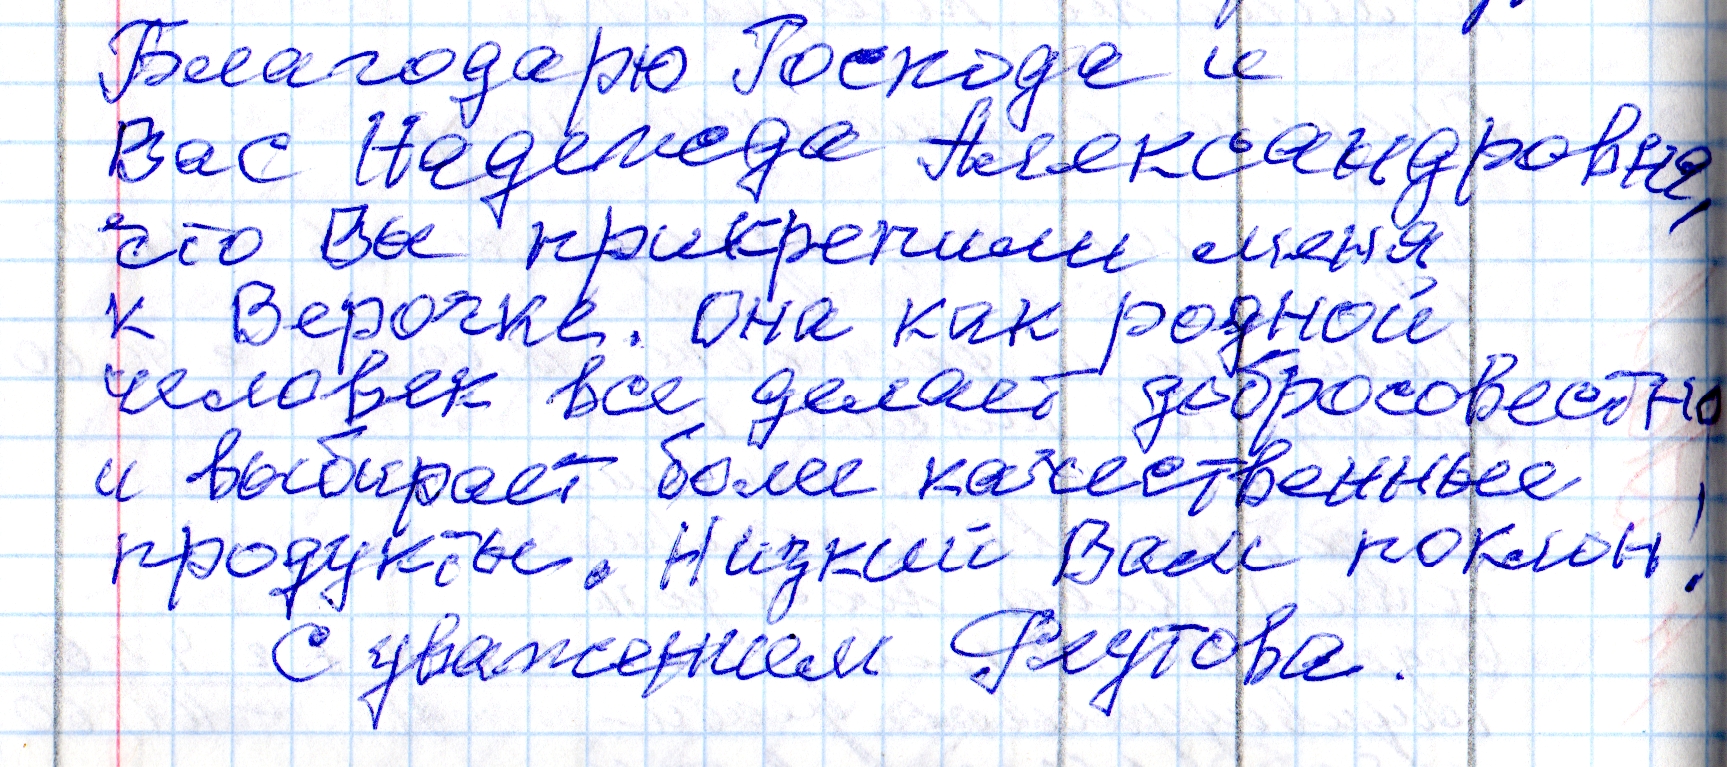 Благодарю Господа и
Вас Надежда Александровна,
что Вы прикрепили меня
к Верочке. Она как родной
человек все делает добросовестно
и выбирает более качественные
продукты. Низкий Вам поклон!
С уважением